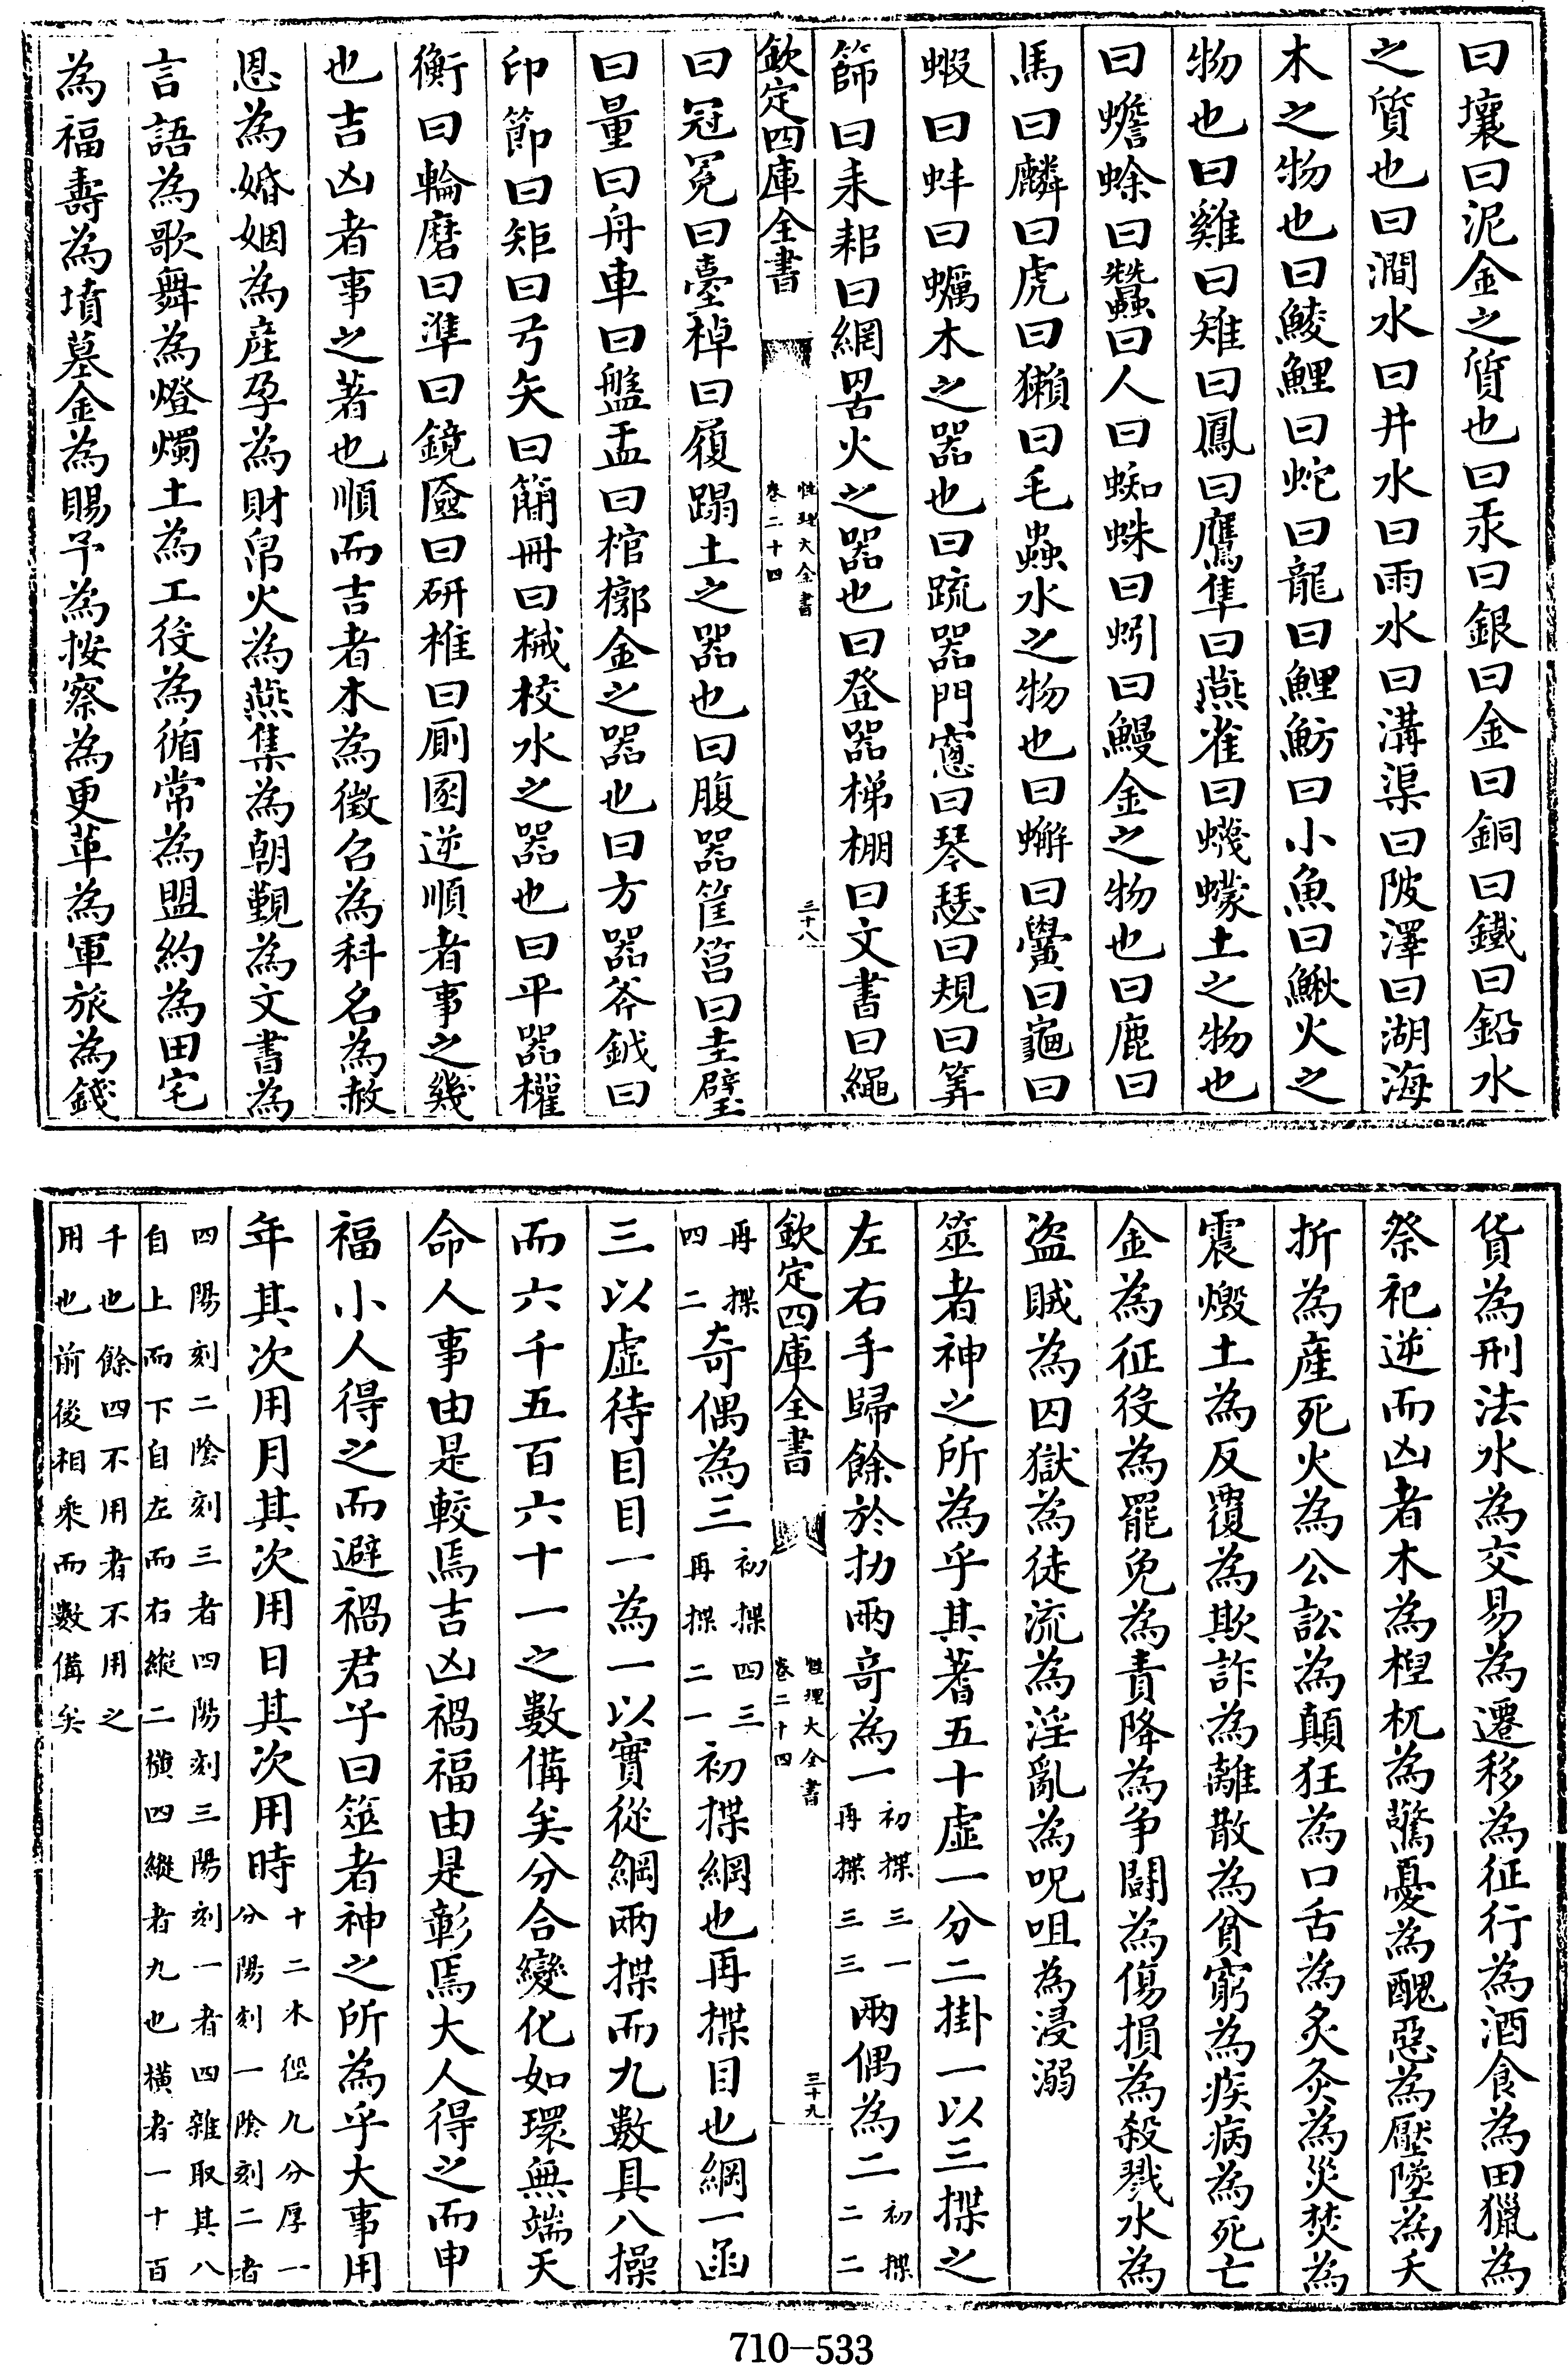 曰壤曰泥金之質也曰汞曰銀曰金曰銅曰鐵曰鉛水
之質也曰澗水曰井水曰雨水曰溝渠曰陂澤曰湖海
木之物也曰鯪鯉曰蛇曰龍曰鯉魴曰小魚曰鰍火之
物也曰雞曰雉曰鳳曰鷹隼曰燕雀曰蠛蠓土之物也
曰蟾蜍曰蠶曰人曰蜘蛛曰蚓曰鰻金之物也曰鹿曰
馬曰麟曰虎曰獺曰毛蟲水之物也曰蠏曰鱟曰龜曰
蝦曰蚌曰蠣木之器也曰疏器門窻曰琴瑟曰規曰筭
篩曰耒耜曰網罟火之器也曰登器梯棚曰文書曰繩
欽定四庫全書
性理大全書
卷二十四
三十八
曰冠冕曰臺棹曰履蹋土之器也曰腹器筐筥曰圭璧
曰量曰舟車曰盤盂曰棺槨金之器也曰方器斧鉞曰
印節曰矩曰弓矢曰簡冊曰械校水之器也曰平器權
衡曰輪磨曰準曰鏡奩曰研椎曰厠圂逆順者事之幾
也吉凶者事之著也順而吉者木為徵召為科名為赦
恩為婚姻為產孕為財帛火為燕集為朝覲為文書為
言語為歌舞為燈燭土為工役為循常為盟約為田宅
為福壽為墳墓金為賜予為按察為更革為軍旅為錢
貨為刑法水為交易為遷移為征行為酒食為田獵為
祭祀逆而凶者木為楻杌為驚憂為醜惡為壓墜為夭
折為產死火為公訟為顛狂為口舌為炙灸為災焚為
震燬土為反覆為欺詐為離散為貧窮為疾病為死亡
金為征役為罷免為責降為争鬪為傷損為殺戮水為
盜賊為囚獄為徒流為淫亂為呪咀為浸溺
筮者神之所為乎其蓍五十虛一分二掛一以三揲之
左右手歸餘於扐兩奇為一初揲三一再揲三三兩偶為二初揲二二
欽定四庫全書
性理大全書
卷二十四
三十九
再揲四二奇偶為三初揲四三再揲二一初揲綱也再揲目也綱一函
三以虛待目目一為一以實從綱兩揲而九數具八操
而六千五百六十一之數備矣分合變化如環無端天
命人事由是較焉吉凶禍福由是彰焉大人得之而申
福小人得之而避禍君子曰筮者神之所為乎大事用
年其次用月其次用日其次用時十二木徑九分厚一分陽刻一陰刻二者
四陽刻二陰刻三者四陽刻三陽刻一者四雜取其八
自上而下自左而右縱二橫四縱者九也橫者一十百
千也餘四不用者不用之
用也前後相乘而數備矣
710-533